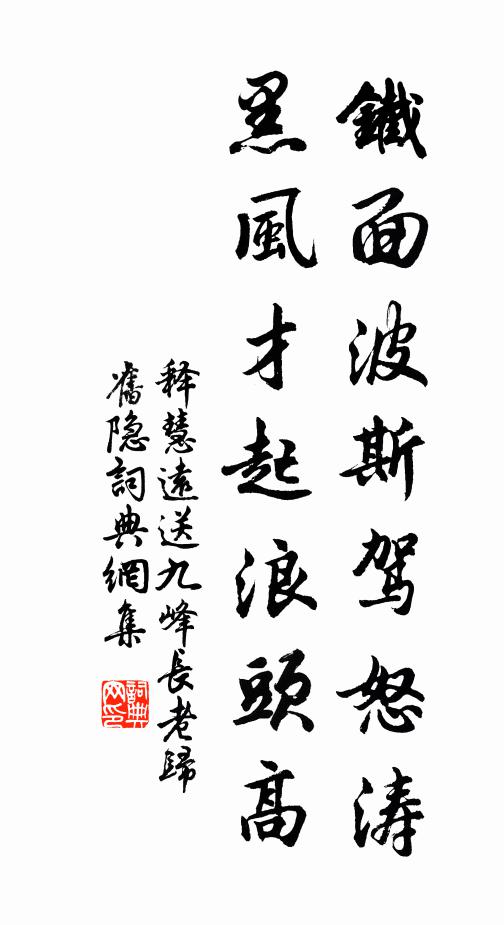 鐵面波斯駕怒涛
黑風才起浪頭高
释慧遠送九峰長老歸
舊隐詞典網集
詞典网印